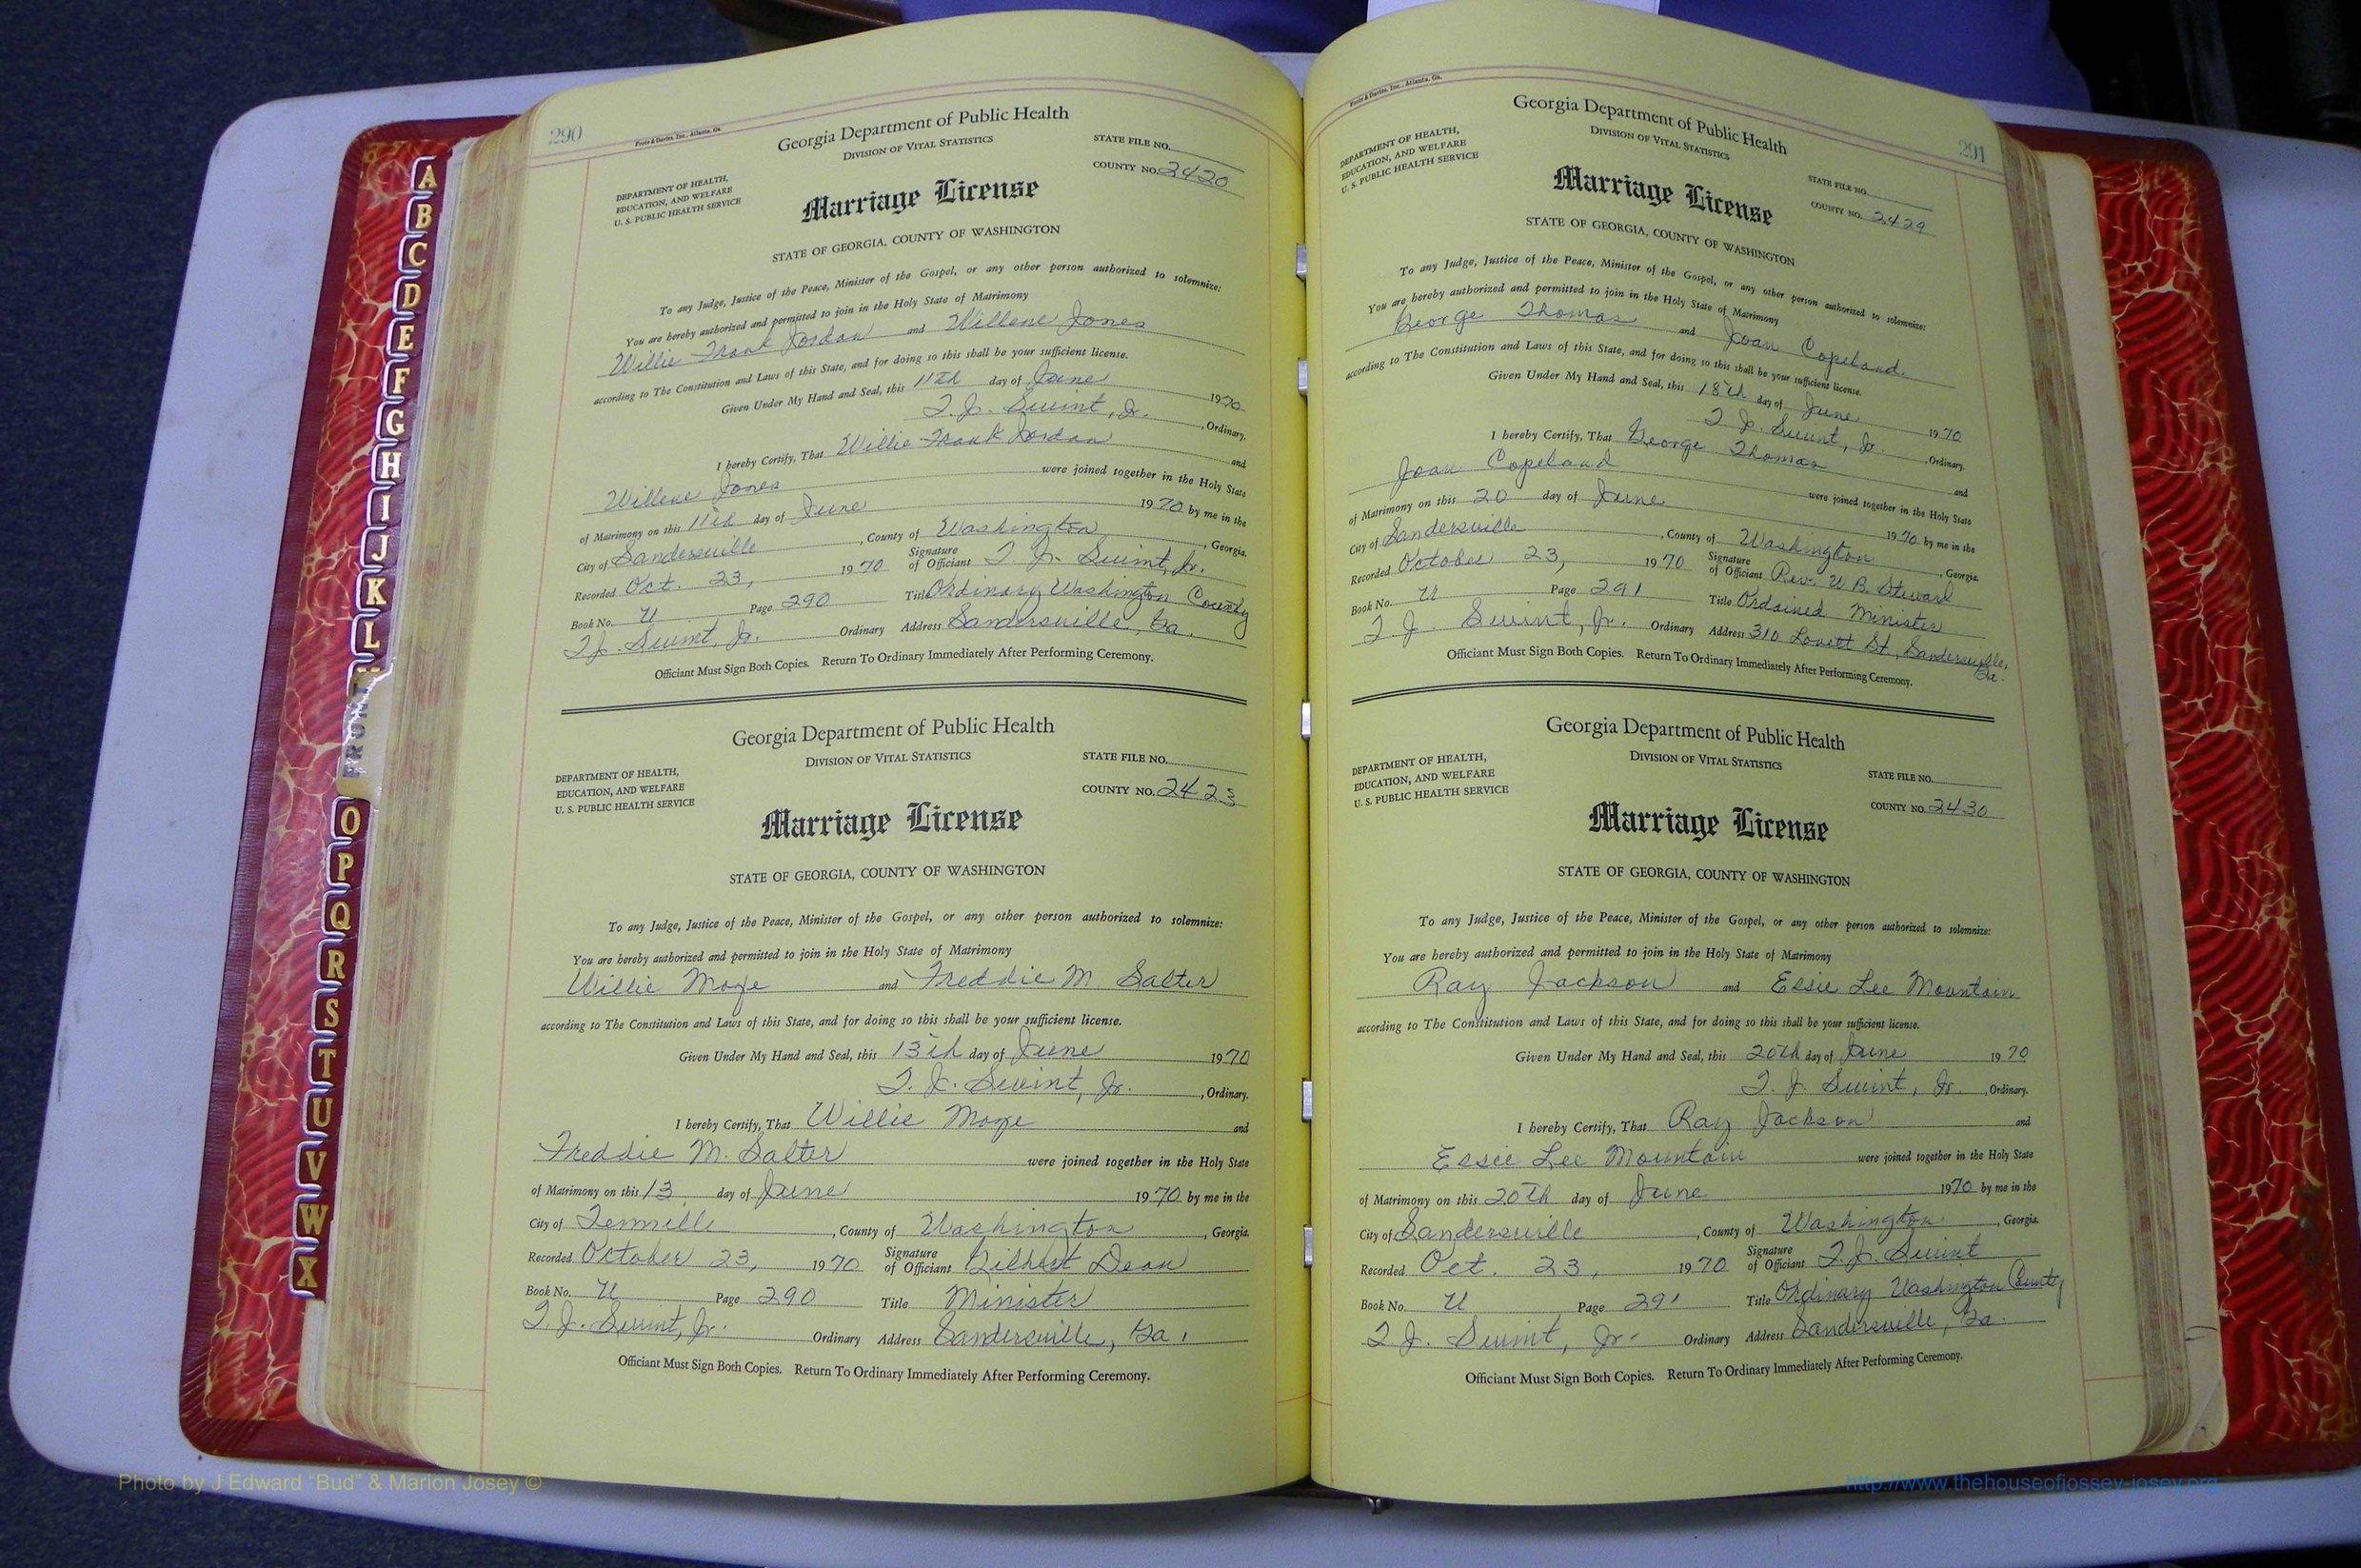 A
B
C
D
E
F
G
H
I
J
K
L
FRONT
O
P
Q
R
S
T
U
V
W
X
290
Foote & Davies, Inc., Atlanta, Ga.
Georgia Department of Public Health
DIVISION OF VITAL STATISTICS
STATE FILE NO.
COUNTY NO. 2420
DEPARTMENT OF HEALTH,
EDUCATION, AND WELFARE
U. S. PUBLIC HEALTH SERVICE
Marriage License
STATE OF GEORGIA, COUNTY OF WASHINGTON
To any Judge, Justice of the Peace, Minister of the Gospel, or any other person authorized to solemnize:
You are hereby authorized and permitted to join in the Holy State of Matrimony
Willie Frank Jordan and Willene Jones
according to The Constitution and Laws of this State, and for doing so this shall be your sufficient license.
Given Under My Hand and Seal, this 11th day of June 1970
T. J. Swint, Jr. , Ordinary.
I hereby Certify, That Willie Frank Jordan and
Willene Jones were joined together in the Holy State
of Matrimony on this 11th day of June 1970 by me in the
City of Sandersville , County of Washington , Georgia.
Recorded Oct. 23, 1970 Signature of Officiant T. J. Swint, Jr.
Book No. U Page 290 Title Ordinary Washington County
T. J. Swint, Jr. Ordinary Address Sandersville, Ga.
Officiant Must Sign Both Copies. Return To Ordinary Immediately After Performing Ceremony.
Georgia Department of Public Health
DIVISION OF VITAL STATISTICS
STATE FILE NO.
COUNTY NO. 2423
DEPARTMENT OF HEALTH,
EDUCATION, AND WELFARE
U. S. PUBLIC HEALTH SERVICE
Marriage License
STATE OF GEORGIA, COUNTY OF WASHINGTON
To any Judge, Justice of the Peace, Minister of the Gospel, or any other person authorized to solemnize:
You are hereby authorized and permitted to join in the Holy State of Matrimony
Willie Moye and Freddie M. Salter
according to The Constitution and Laws of this State, and for doing so this shall be your sufficient license.
Given Under My Hand and Seal, this 13th day of June 1970
T. J. Swint, Jr. , Ordinary.
I hereby Certify, That Willie Moye and
Freddie M. Salter were joined together in the Holy State
of Matrimony on this 13 day of June 1970 by me in the
City of Tennille , County of Washington , Georgia.
Recorded October 23, 1970 Signature of Officiant Gilbert Dean
Book No. U Page 290 Title Minister
T. J. Swint, Jr. Ordinary Address Sandersville, Ga.
Officiant Must Sign Both Copies. Return To Ordinary Immediately After Performing Ceremony.
Foote & Davies, Inc., Atlanta, Ga.
291
Georgia Department of Public Health
DIVISION OF VITAL STATISTICS
DEPARTMENT OF HEALTH,
EDUCATION, AND WELFARE
U. S. PUBLIC HEALTH SERVICE
STATE FILE NO.
COUNTY NO. 2429
Marriage License
STATE OF GEORGIA, COUNTY OF WASHINGTON
To any Judge, Justice of the Peace, Minister of the Gospel, or any other person authorized to solemnize:
You are hereby authorized and permitted to join in the Holy State of Matrimony
George Thomas and Joan Copeland
according to The Constitution and Laws of this State, and for doing so this shall be your sufficient license.
Given Under My Hand and Seal, this 18th day of June 1970
T. J. Swint, Jr. , Ordinary.
I hereby Certify, That George Thomas and
Joan Copeland were joined together in the Holy State
of Matrimony on this 20 day of June 1970 by me in the
City of Sandersville , County of Washington , Georgia.
Recorded October 23, 1970 Signature of Officiant Rev. W B. Steward
Book No. U Page 291 Title Ordained Minister
T. J. Swint, Jr. Ordinary Address 310 Lovett St., Sandersville, Ga.
Officiant Must Sign Both Copies. Return To Ordinary Immediately After Performing Ceremony.
Georgia Department of Public Health
DIVISION OF VITAL STATISTICS
DEPARTMENT OF HEALTH,
EDUCATION, AND WELFARE
U. S. PUBLIC HEALTH SERVICE
STATE FILE NO.
COUNTY NO. 2430
Marriage License
STATE OF GEORGIA, COUNTY OF WASHINGTON
To any Judge, Justice of the Peace, Minister of the Gospel, or any other person authorized to solemnize:
You are hereby authorized and permitted to join in the Holy State of Matrimony
Ray Jackson and Essie Lee Mountain
according to The Constitution and Laws of this State, and for doing so this shall be your sufficient license.
Given Under My Hand and Seal, this 20th day of June 1970
T. J. Swint, Jr. , Ordinary.
I hereby Certify, That Ray Jackson and
Essie Lee Mountain were joined together in the Holy State
of Matrimony on this 20th day of June 1970 by me in the
City of Sandersville , County of Washington , Georgia.
Recorded Oct. 23, 1970 Signature of Officiant T. J. Swint
Book No. U Page 291 Title Ordinary Washington County
T. J. Swint, Jr. Ordinary Address Sandersville, Ga.
Officiant Must Sign Both Copies. Return To Ordinary Immediately After Performing Ceremony.
Photo by J Edward "Bud" & Marion Josey ©
http://www.thehouseofjossey-josey.org